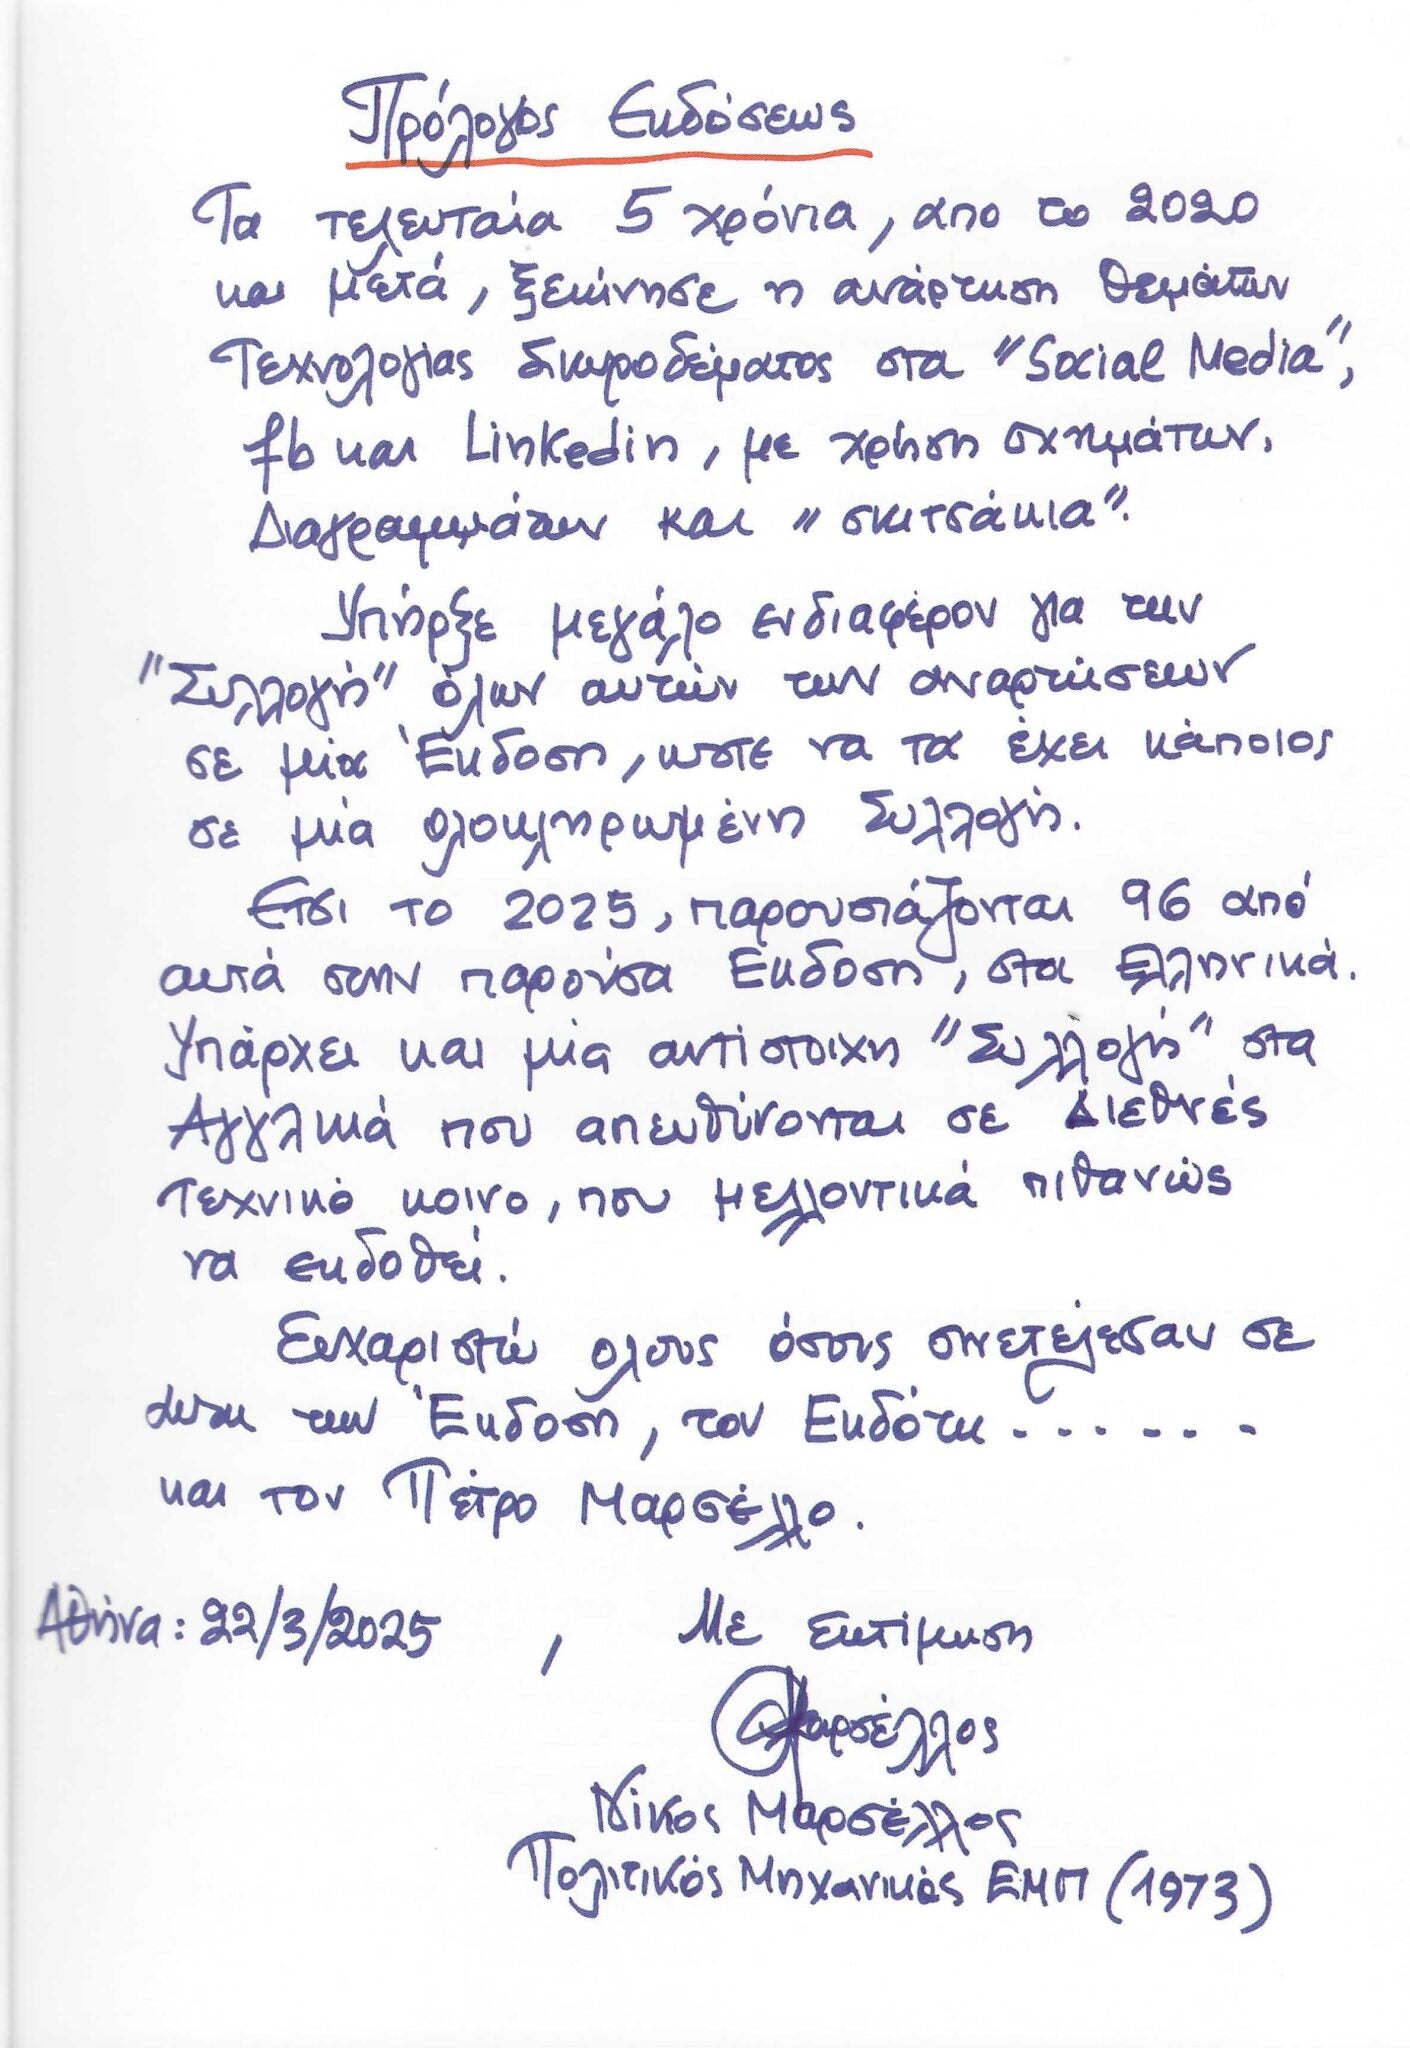 Πρόλογος Εκδόσεως
Τα τελευταία 5 χρόνια, απο το 2020
και μετά, ξεκίνησε η ανάρτηση θεμάτων
Τεχνολογίας σκυροδέματος στα "Social Media",
fb και Linkedin, με χρήση σχημάτων.
Διαγραμμάτων και "σκιτσάκια".
Υπήρξε μεγάλο ενδιαφέρον για την
"Συλλογή" όλων αυτών των αναρτήσεων
σε μία Έκδοση, ωστε να τα έχει κάποιος
σε μία ολοκληρωμένη Συλλογή.
Ετσι το 2025, παρουσιάζονται 96 από
αυτά στην παρούσα Εκδοση, στα Ελληνικά.
Υπάρχει και μία αντίστοιχη "Συλλογή" στα
Αγγλικά που απευθύνονται σε Διεθνές
τεχνικό κοινο, που μελλοντικά πιθανώς
να εκδοθεί.
Ευχαριστώ ολους όσους συνετέλεσαν σε
αυτη την Έκδοση, τον Εκδότη .......
και τον Πέτρο Μαρσέλλο.
Αθήνα: 22/3/2025 , Με εκτίμηση
Μαρσέλλος
Νίκος Μαρσέλλος
Πολιτικός Μηχανικός ΕΜΠ (1973)